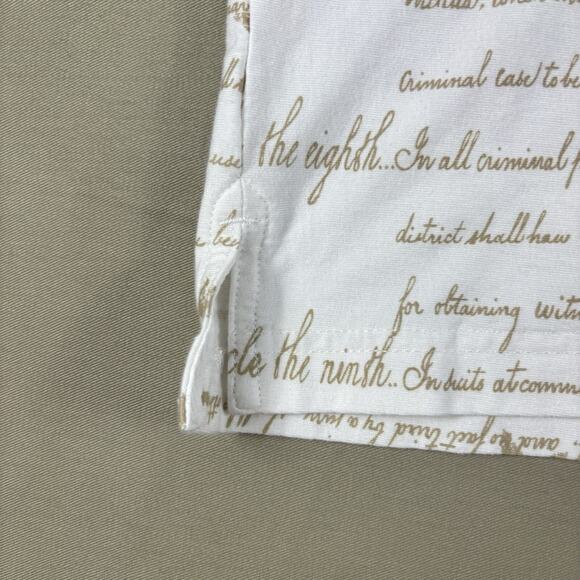 criminal case to be
the eighth... In all criminal
district shall have
for obtaining witn
cle the ninth.. In suits at comm
no fact tried by a jury